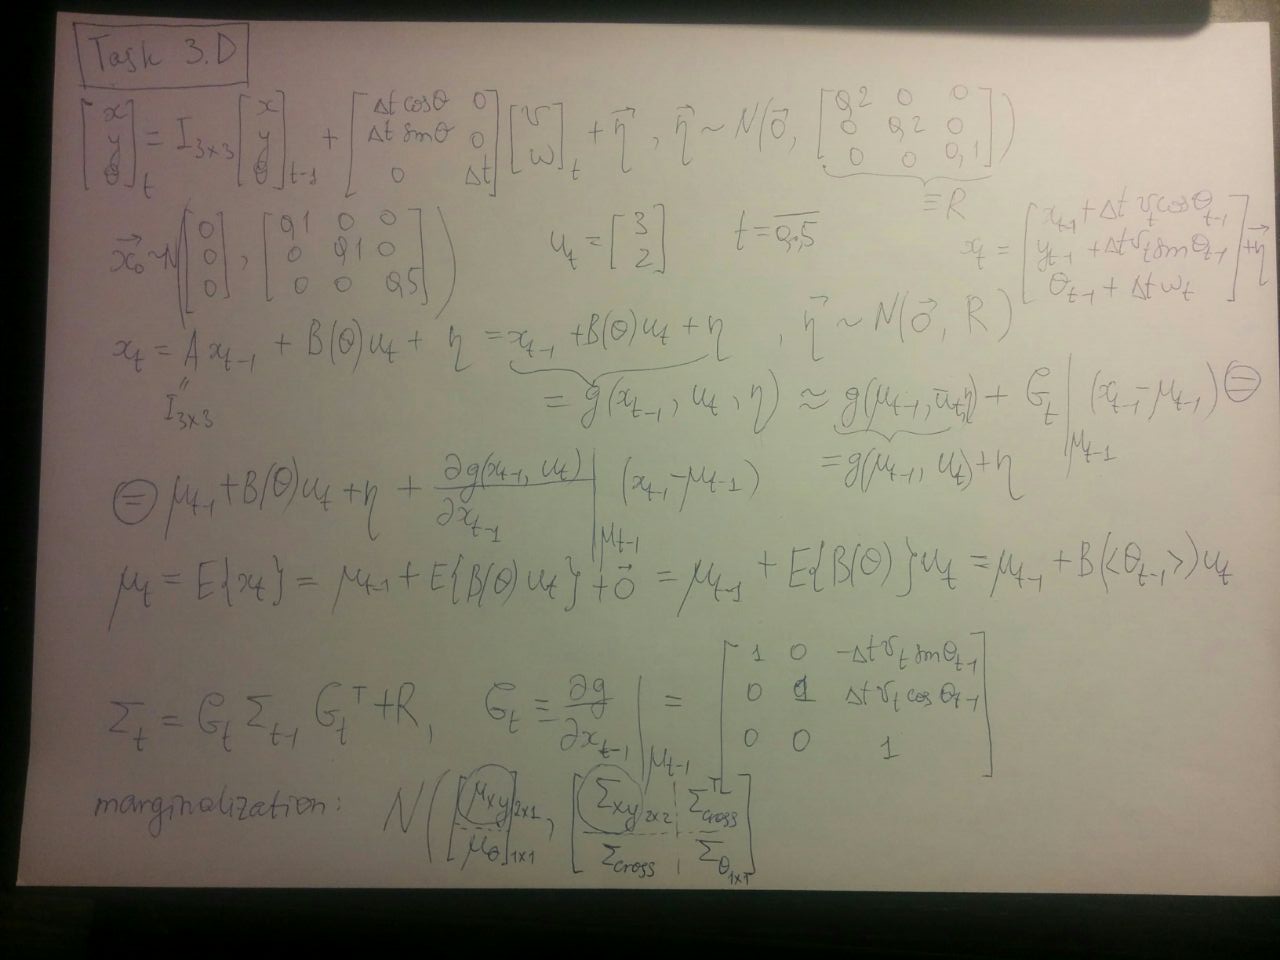 Task 3.D
[x y θ]_t = I_{3×3} [x y θ]_{t-1} + [Δt cosθ 0; Δt sinθ 0; 0 Δt] [v ω]_t + η⃗ , η⃗ ~ N(0⃗, [0,2 0 0; 0 0,2 0; 0 0 0,1]) ≡ R
x⃗_0 ~ N([0 0 0], [0,1 0 0; 0 0,1 0; 0 0 0,5]) u_t = [3 2] t = \overline{0,5} x_t = [x_{t-1} + Δt v_t cosθ_{t-1}; y_{t-1} + Δt v_t sinθ_{t-1}; θ_{t-1} + Δt ω_t] + η⃗
x_t = A x_{t-1} + B(θ)u_t + η = x_{t-1} + B(θ)u_t + η , η⃗ ~ N(0⃗, R)
" I_{3×3}
= g(x_{t-1}, u_t, η) ≈ g(μ_{t-1}, u_t, η) + G_t |_{μ_{t-1}} (x_{t-1} - μ_{t-1}) ⊜
= g(μ_{t-1}, u_t) + η
⊜ μ_{t-1} + B(θ)u_t + η + ∂g(x_{t-1}, u_t)/∂x_{t-1} |_{μ_{t-1}} (x_{t-1} - μ_{t-1})
μ_t = E{x_t} = μ_{t-1} + E{B(θ)u_t} + 0⃗ = μ_{t-1} + E{B(θ)}u_t = μ_{t-1} + B(<θ_{t-1}>)u_t
Σ_t = G_t Σ_{t-1} G_t^T + R, G_t ≡ ∂g/∂x_{t-1} |_{μ_{t-1}} = [1 0 -Δt v_t sinθ_{t-1}; 0 1 Δt v_t cosθ_{t-1}; 0 0 1]
marginalization: N([μ_{xy} 2×1; μ_θ 1×1], [Σ_{xy} 2×2 Σ_{cross}^T; Σ_{cross} Σ_θ 1×1]